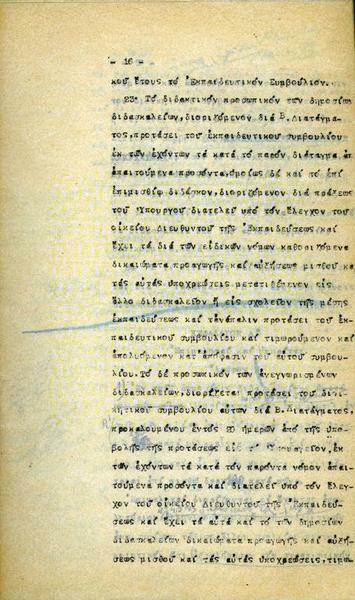 - 16 -
κοῦ ἔτους τό Ἐκπαιδευτικόν Συμβούλιον.
23· Τό διδακτικόν προσωπικόν τῶν δημοσίων
διδασκαλείων, διοριζόμενον διά Β. Διατάγμα
τος, προτάσει τοῦ ἐκπαιδευτικοῦ συμβουλίου
ἐκ τῶν ἐχόντων τά κατά τό παρόν διάταγμα ἀπ
απαιτούμενα προσόντα, ὁμοίως δέ καί τό ἐπί
ἐπιμισθίῳ διδάσκον, διοριζόμενον διά πράξεως
τοῦ Ὑπουργοῦ διατελεῖ ὑπό τόν ἔλεγχον τοῦ
οἰκείου Διευθυντοῦ τῆς Ἐκπαιδεύσεως καί
ἔχει τά διά τῶν εἰδικῶν νόμων καθοριζόμενα
δικαιώματα προαγωγῆς καί αὐξήσεως μισθοῦ κα
τάς αὐτάς ὑποχρεώσεις μετατιθέμενον εἰς
ἄλλο διδασκαλεῖον ἤ εἰς σχολεῖον τῆς μέσης
ἐκπαιδεύσεως καί τἀνάπαλιν προτάσει τοῦ ἐκ-
παιδευτικοῦ συμβουλίου καί τιμωρούμενον καί
ἀπολυόμενον κατ' ἀπόφασιν τοῦ αὐτοῦ συμβου-
λίου. Τό δέ προσωπικόν τῶν ἀνεγνωρισμένων
διδασκαλείων, διορίζεται προτάσει τοῦ διοι-
κητικοῦ συμβουλίου αὐτῶν διά Β. Διατάγματος,
προκαλουμένου ἐντός 20 ἡμερῶν ἀπό τῆς ὑπο-
βολῆς τῆς προτάσεως εἰς τό Ὑπουργεῖον, ἐκ
τῶν ἐχόντων τά κατά τόν παρόντα νόμον ἀπαι-
τούμενα προσόντα καί διατελεῖ ὑπό τόν ἔλεγ-
χον τοῦ οἰκείου Διευθυντοῦ τῆς Ἐκπαιδεύ-
σεως καί ἔχει τά αὐτά καί τό τῶν δημοσίων
διδασκαλείων δικαιώματα προαγωγῆς καί αὐξή-
σεως μισθοῦ καί τάς αὐτάς ὑποχρεώσεις, τιμω-